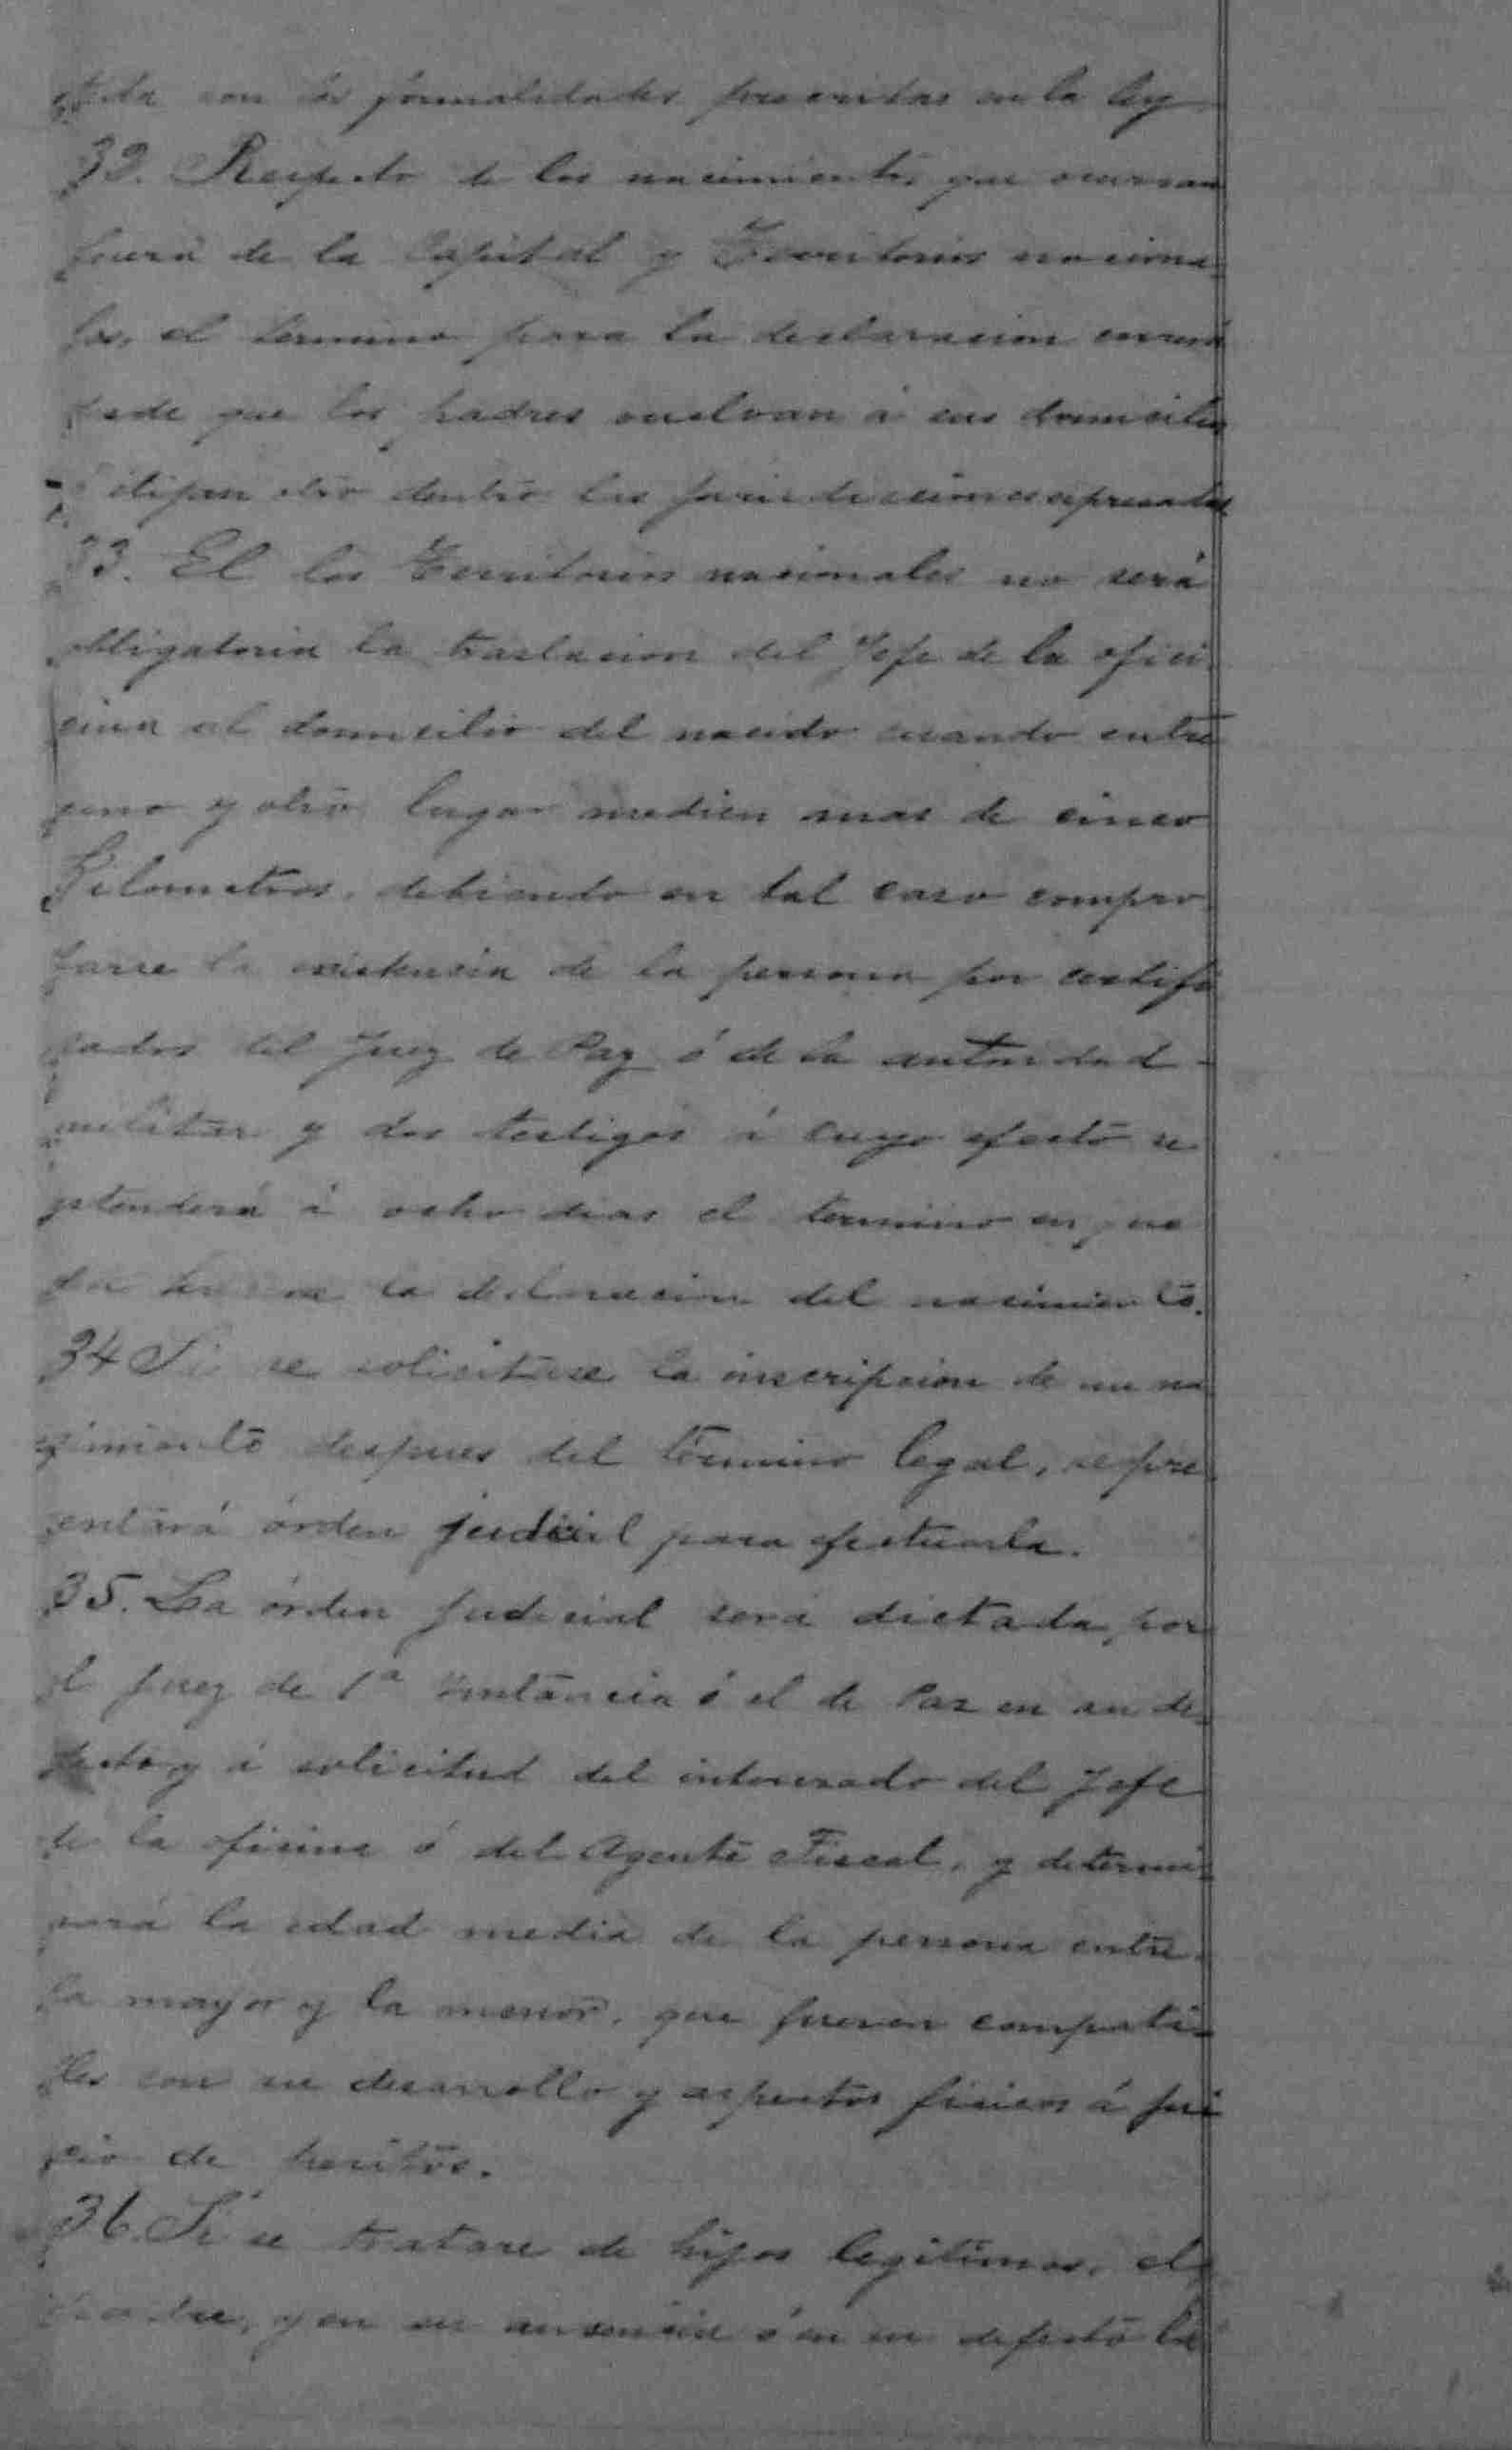 con las formalidades prescritas en la ley
32. Respecto de los nacimientos que ocurran
fuera de la Capital y Territorios naciona-
les, el termino para la declaracion correrá
desde que los padres vuelvan á sus domicilios
ó elijan otro dentro las jurisdicciones espresadas
33. El los Territorios nacionales no será
obligatoria la traslacion del Jefe de la ofici-
cina al domicilio del nacido cuando entre
uno y otro lugar medien mas de cinco
Kilometros, debiendo en tal caso compro-
barse la existencia de la persona por certifi
cados del Juez de Paz ó de la autoridad
militar y dos testigos á cuyo efecto se
estenderá á ocho dias el termino en que
la declaracion del nacimiento.
34 Si se solicitase la inscripcion de un na
cimiento despues del término legal, se pre
sentará órden judicial para efectuarla.
35. La órden judicial será dictada, por
el juez de 1ª instancia ó el de Paz en su de-
fecto y á solicitud del interesado del Jefe
de la oficina ó del Agente Fiscal, y determi-
nará la edad media de la persona entre
la mayor y la menor, que fueren compati-
bles con su desarrollo y aspectos fisicos á jui
cio de peritos.
36. Si se tratare de hijos legitimos, el
padre, y en su ausencia ó en su defecto la